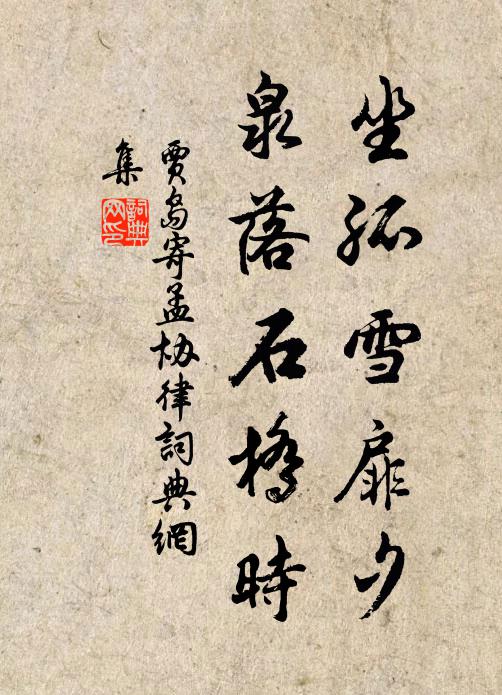 坐孤雪扉夕
泉落石橋時
賈島寄孟協律詞典網
集
詞典
網印